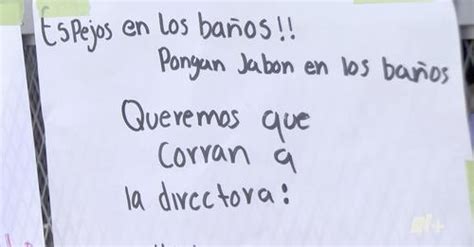 Espejos en los baños!!
Pongan Jabon en los baños
Queremos que
corran a
la directora: